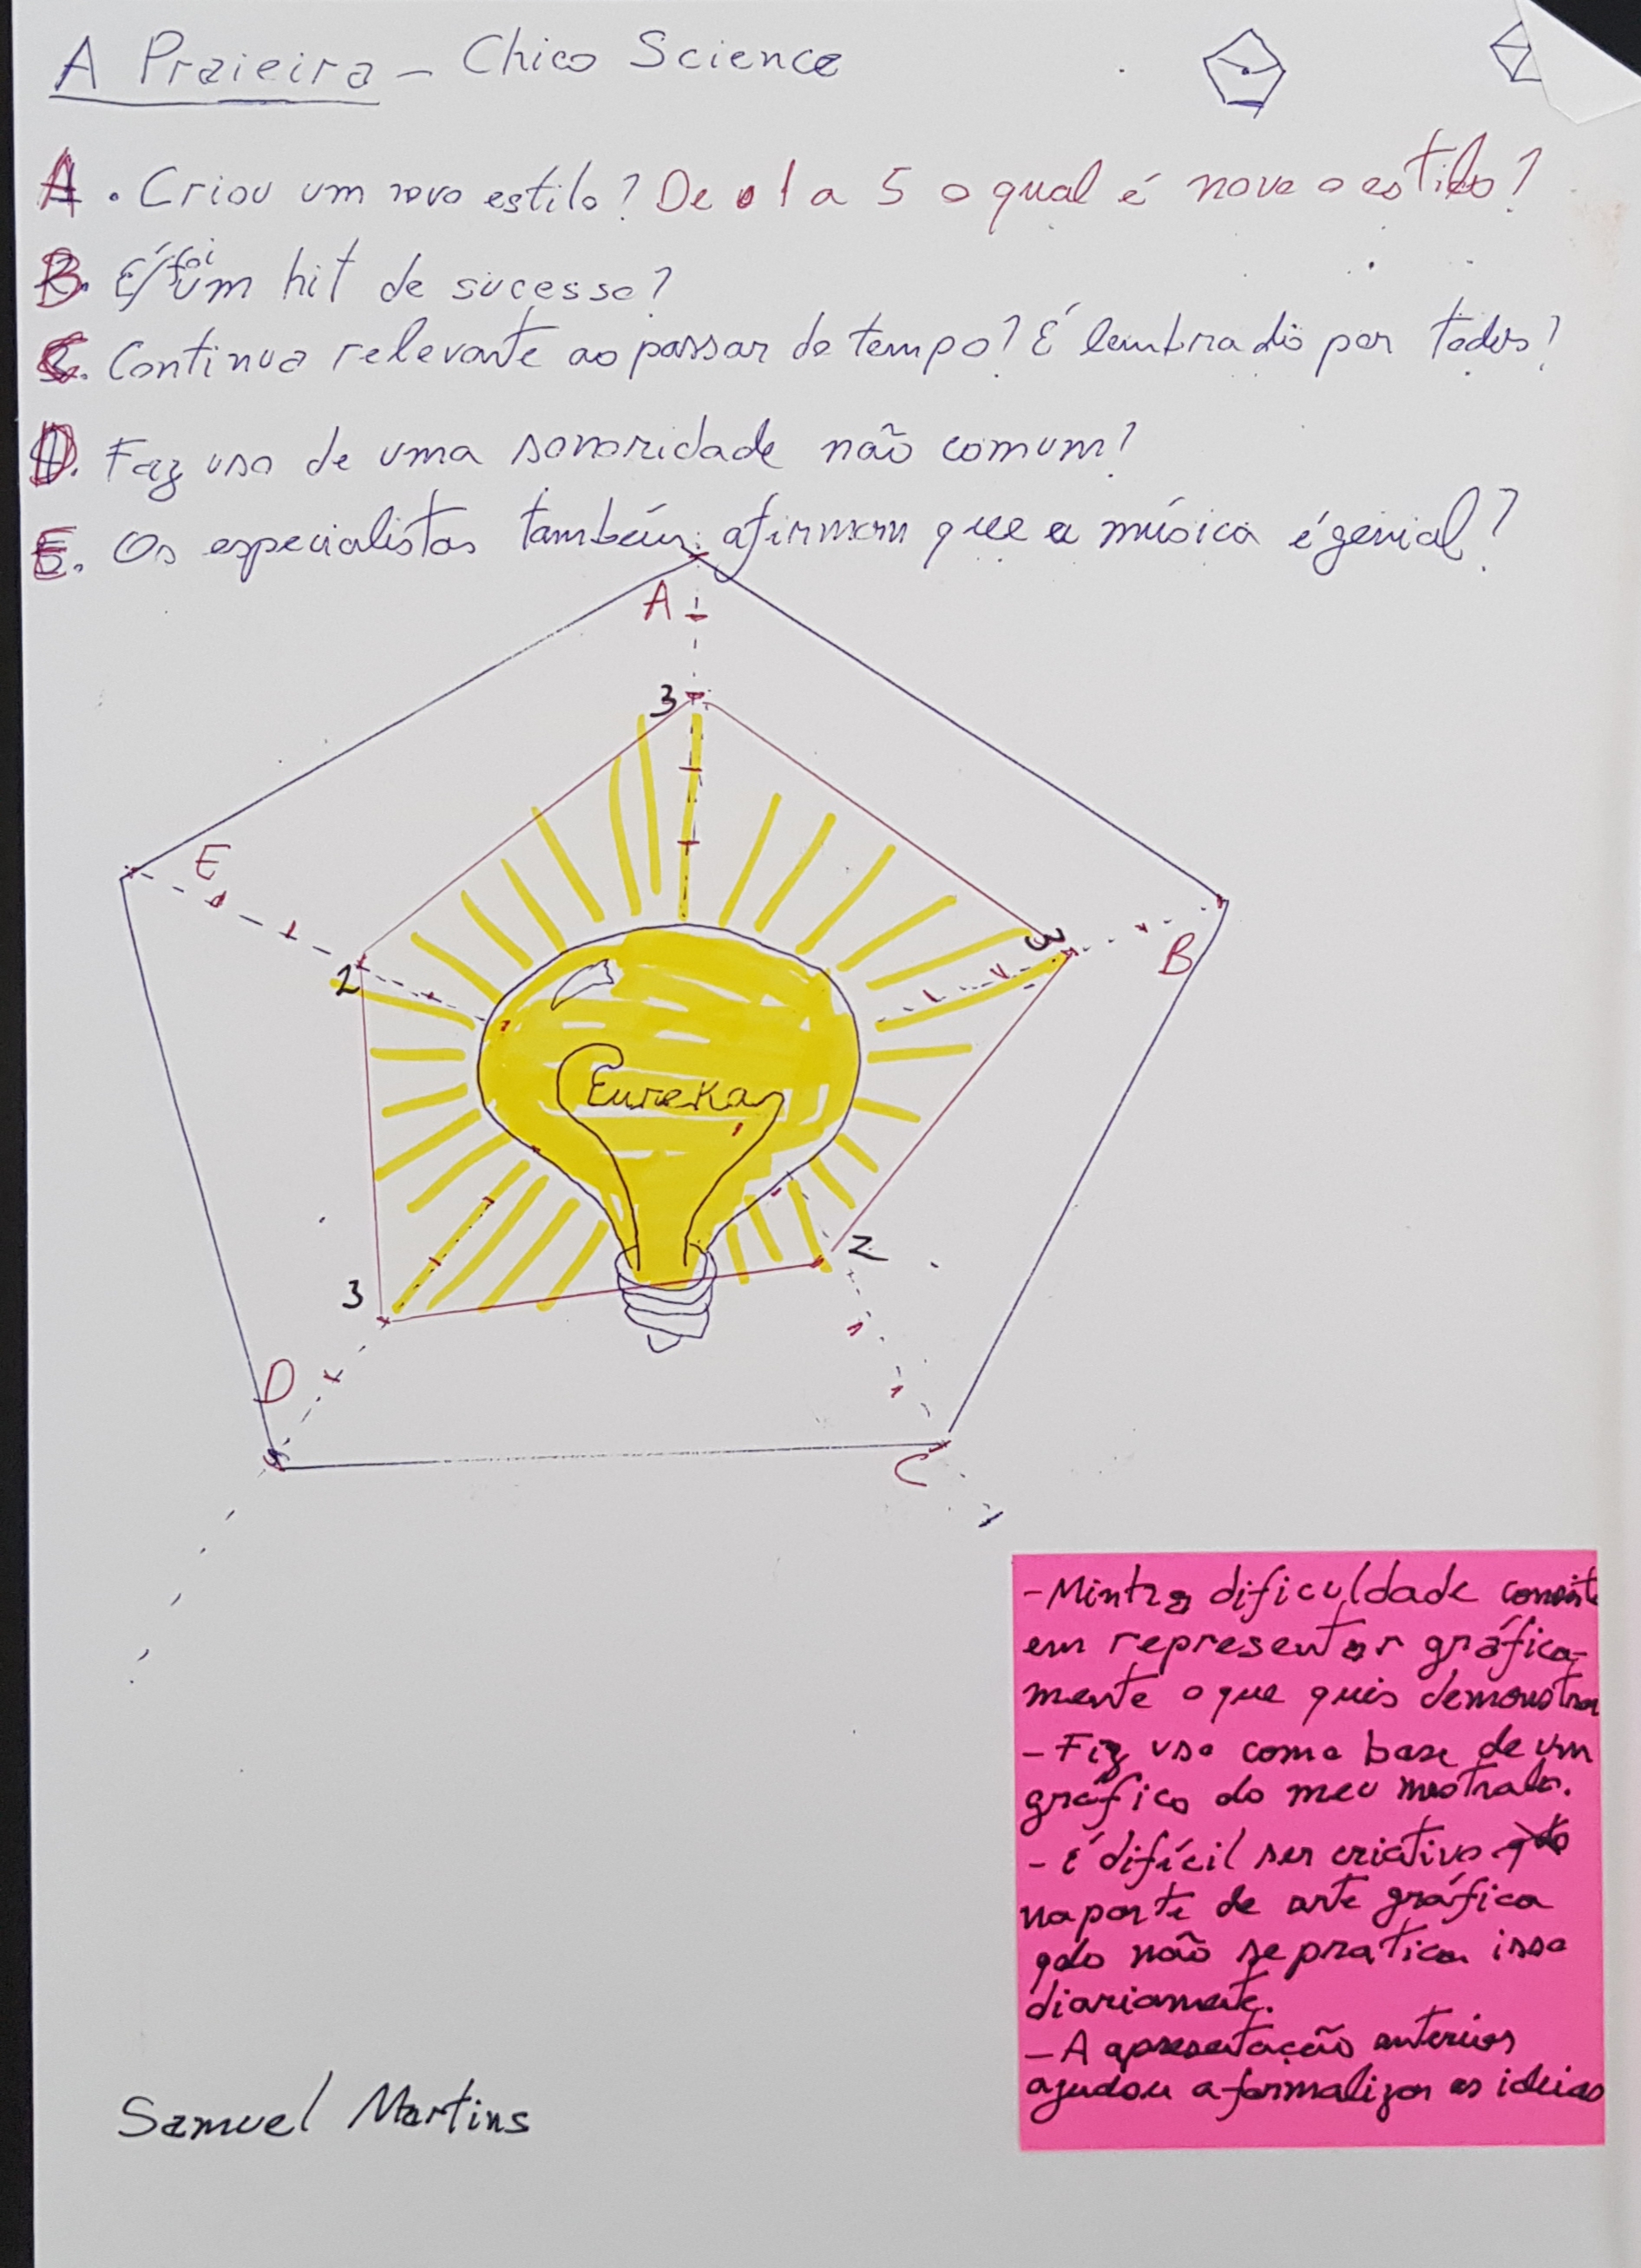 A Praieira - Chico Science
A. Criou um novo estilo? De 1 a 5 o qual é novo o estilo?
B. É/foi um hit de sucesso?
C. Continua relevante ao passar do tempo? É lembrado por todos?
D. Faz uso de uma sonoridade não comum?
E. Os especialistas também afirmam que a música é genial?
A
3
E
2
3
B
Eureka
2
3
D
C
- Minha dificuldade consiste
em representar gráfica-
mente o que quis demonstrar
- Fiz uso como base de um
gráfico do meu mestrado.
- É difícil ser criativo
na parte de arte gráfica
qdo não se pratica isso
diariamente.
- A apresentação anterior
ajudou a formalizar as ideias
Samuel Martins